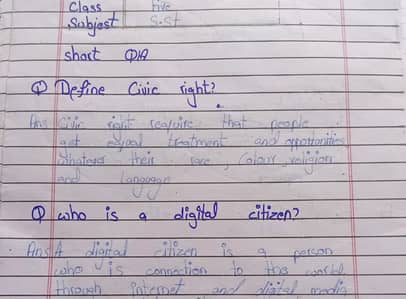 Class Five
Subject S.St
short Q/A
Q Define Civic right?
Ans Civic right require that people
get equal treatment and opportunities
whatever their race, colour, religion
and language
Q who is a digital citizen?
Ans A digital citizen is a person
who is connection to the world
through internet and digital media